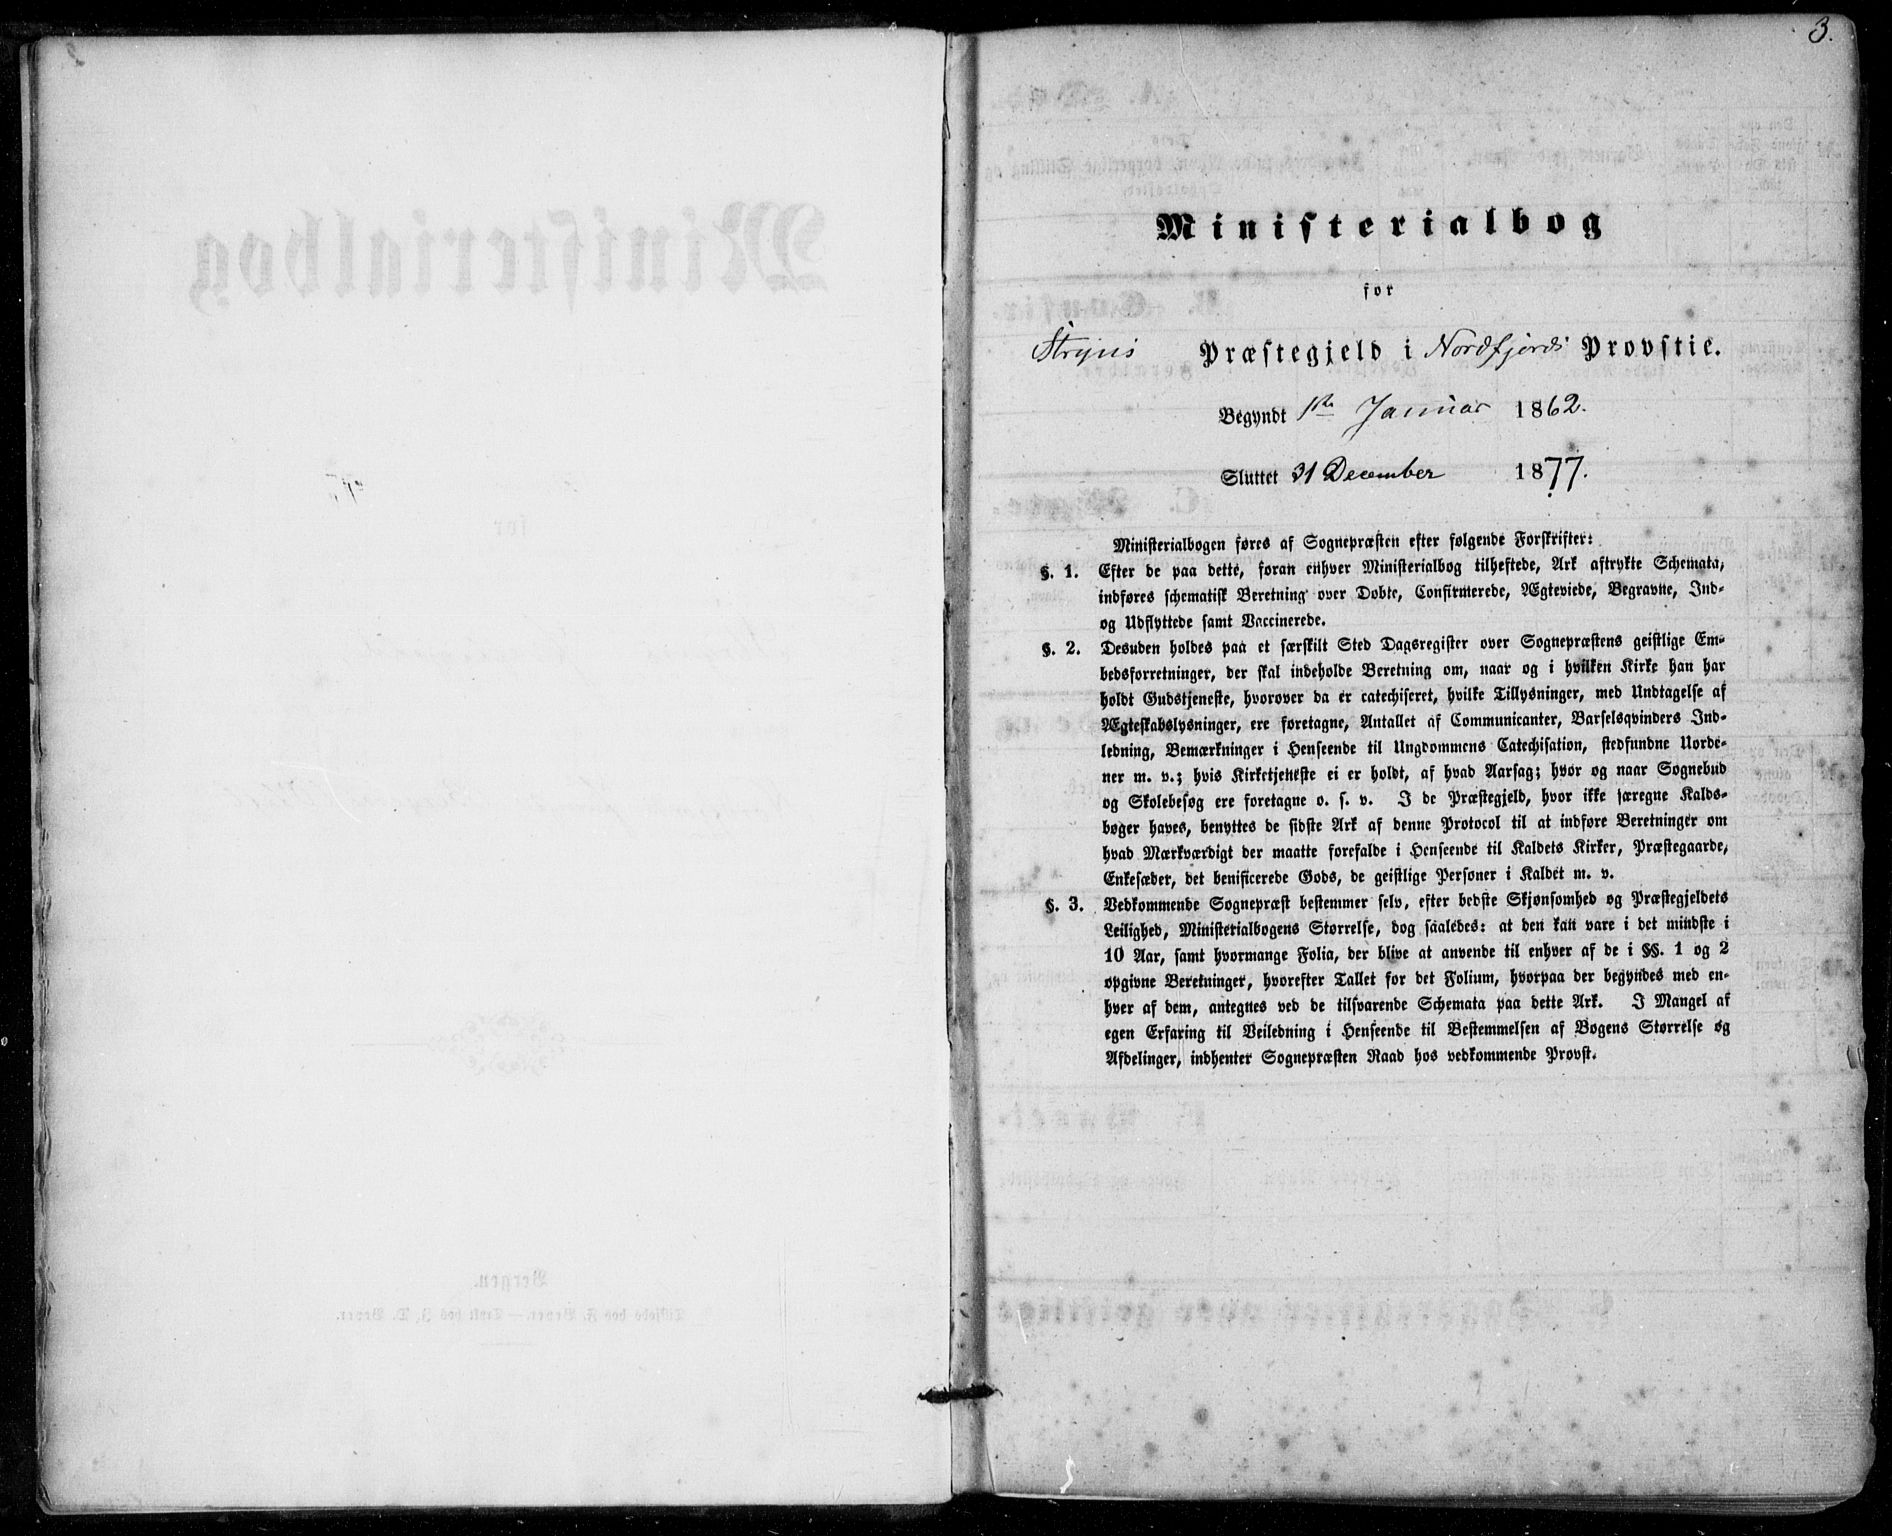 3.
Ministerialbog
for
Stryns Præstegjeld i Nordfjords Provstie.
Begyndt 1ste Januar 1862.
Sluttet 31 December 1877.
Ministerialbogen føres af Sognepræsten efter følgende Forskrifter:
§. 1. Efter de paa dette, foran enhver Ministerialbog tilheftede, Ark aftrykte Schemata,
indføres schematisk Beretning over Døbte, Confirmerede, Ægteviede, Begravne, Ind-
og Udflyttede samt Vaccinerede.
§. 2. Desuden holdes paa et særskilt Sted Dagsregister over Sognepræstens geistlige Em-
bedsforretninger, der skal indeholde Beretning om, naar og i hvilken Kirke han har
holdt Gudstjeneste, hvorover da er catechiseret, hvilke Tillysninger, med Undtagelse af
Ægteskabslysninger, ere foretagne, Antallet af Communicanter, Barselsqvinders Ind-
ledning, Bemærkninger i Henseende til Ungdommens Catechisation, stedfundne Uorde-
ner m. v.; hvis Kirketjeneste ei er holdt, af hvad Aarsag; hvor og naar Sognebud
og Skolebesøg ere foretagne o. s. v. I de Præstegjeld, hvor ikke særegne Kalds-
bøger haves, benyttes de sidste Ark af denne Protocol til at indføre Beretninger om
hvad Mærkværdigt der maatte forefalde i Henseende til Kaldets Kirker, Præstegaarde,
Enkesæder, det benificerede Gods, de geistlige Personer i Kaldet m. v.
§. 3. Vedkommende Sognepræst bestemmer selv, efter bedste Skjønsomhed og Præstegjeldets
Leilighed, Ministerialbogens Størrelse, dog saaledes: at den kan vare i det mindste i
10 Aar, samt hvormange Folia, der blive at anvende til enhver af de i §§. 1 og 2
opgivne Beretninger, hvorefter Tallet for det Folium, hvorpaa der begyndes med en-
hver af dem, antegnes ved de tilsvarende Schemata paa dette Ark. I Mangel af
egen Erfaring til Veiledning i Henseende til Bestemmelsen af Bogens Størrelse og
Afdelinger, indhenter Sognepræsten Raad hos vedkommende Provst.